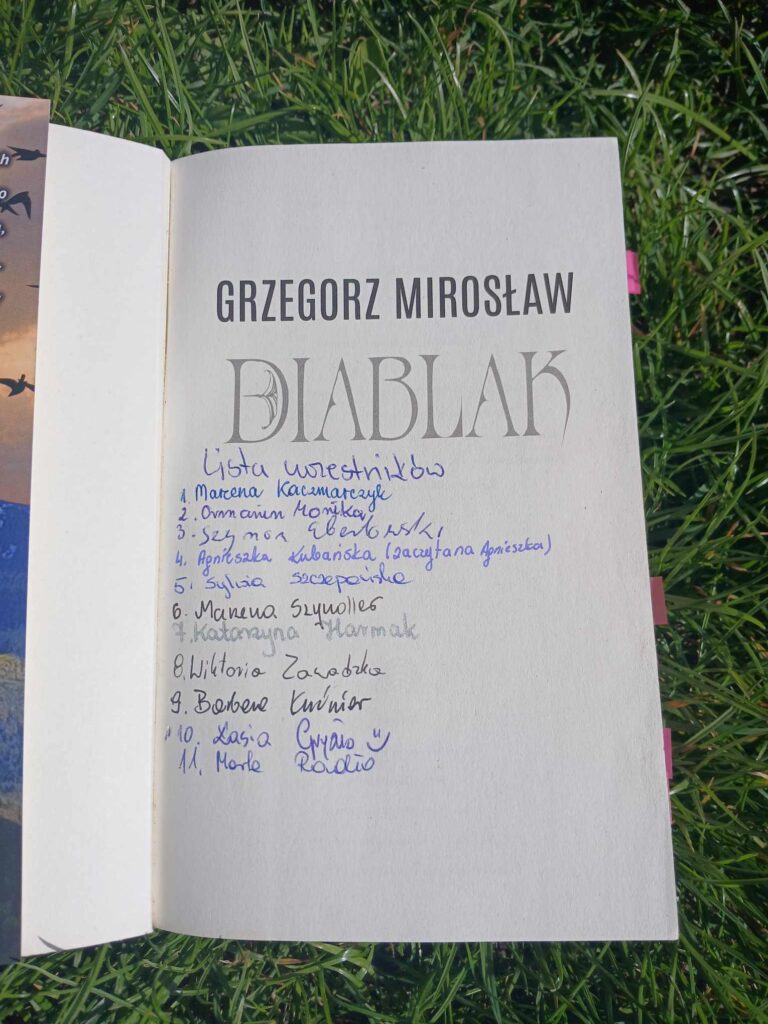 h
GRZEGORZ MIROSŁAW
DIABLAK
Lista uczestników
1. Marzena Kaczmarczyk
2. Monika
3. Szymon
4. Agnieszka Kubańska (zaczytana Agnieszka)
5. Sylwia Szczepańska
6. Marzena Szynoller
7. Katarzyna Harmak
8. Wiktoria Zawadzka
9. Barbara Kuśnier
10. Kasia
11. Marta Radło